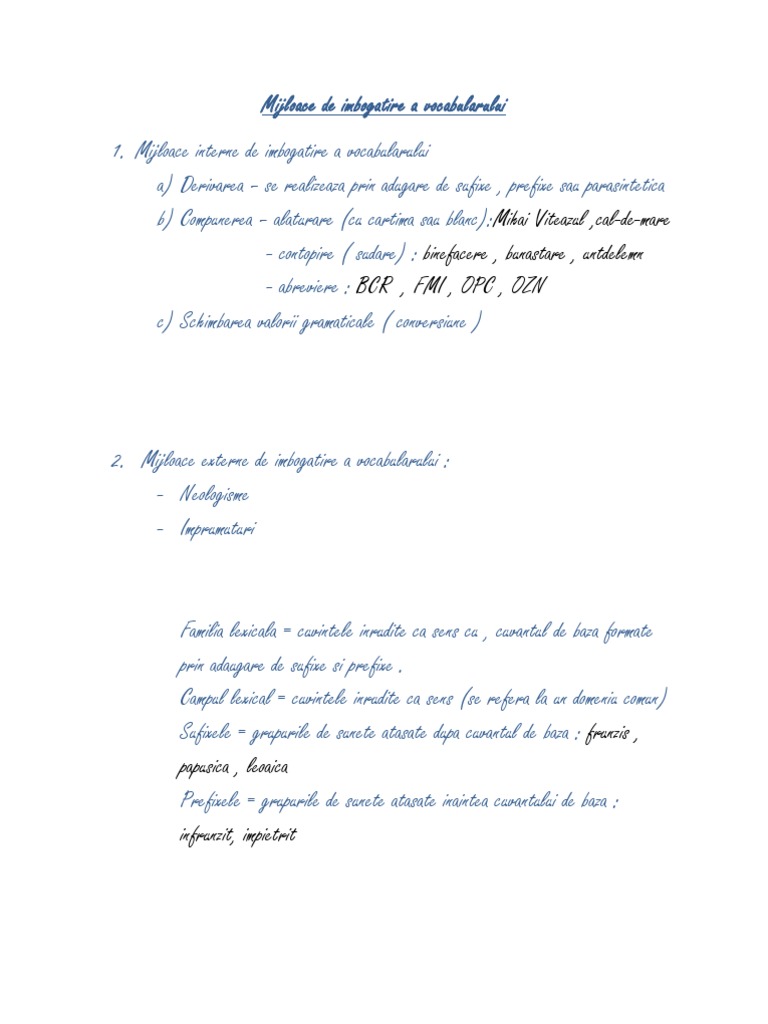 Mijloace de imbogatire a vocabularului
1. Mijloace interne de imbogatire a vocabularului
a) Derivarea – se realizeaza prin adugare de sufixe , prefixe sau parasintetica
b) Compunerea – alaturare (cu cartima sau blanc):Mihai Viteazul ,cal-de-mare
- contopire ( sudare) : binefacere , bunastare , untdelemn
- abreviere : BCR , FMI , OPC , OZN
c) Schimbarea valorii gramaticale ( conversiune )
2. Mijloace externe de imbogatire a vocabularului :
- Neologisme
- Imprumuturi
Familia lexicala = cuvintele inrudite ca sens cu , cuvantul de baza formate
prin adaugare de sufixe si prefixe .
Campul lexical = cuvintele inrudite ca sens (se refera la un domeniu comun)
Sufixele = grupurile de sunete atasate dupa cuvantul de baza : frunzis ,
papusica , leoaica
Prefixele = grupurile de sunete atasate inaintea cuvantului de baza :
infrunzit, impietrit